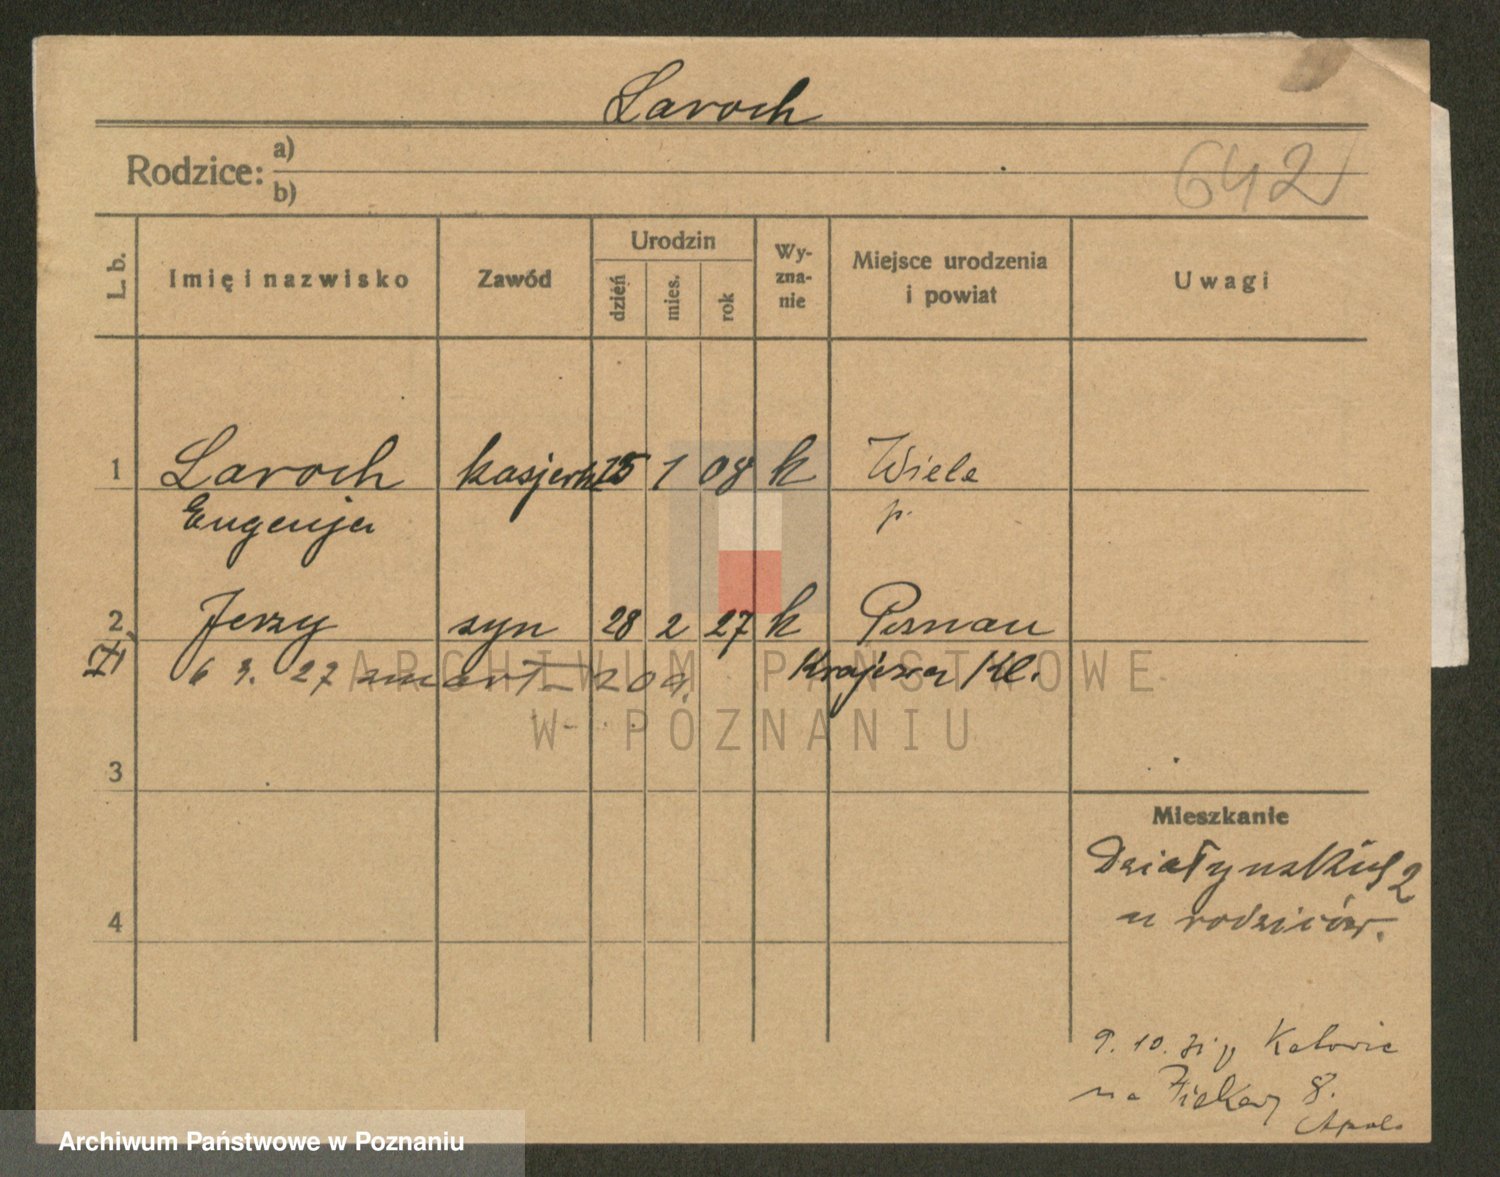 Laroch
Rodzice: a)
b)
642
L. b. Imię i nazwisko Zawód Urodzin dzień mies. rok Wy-zna-nie Miejsce urodzenia i powiat Uwagi
1 Laroch kasjerka 15 1 08 k Wiele
Eugenja p.
2 Jerzy syn 28 2 27 k Poznań
6 3. 27 zmarł 204 Krajzewy Kl.
3
Mieszkanie
Działyńskich 2
u rodziców.
4
9. 10. 31 Katowic
na 8.
ARCHIWUM PAŃSTWOWE
W POZNANIU
Archiwum Państwowe w Poznaniu